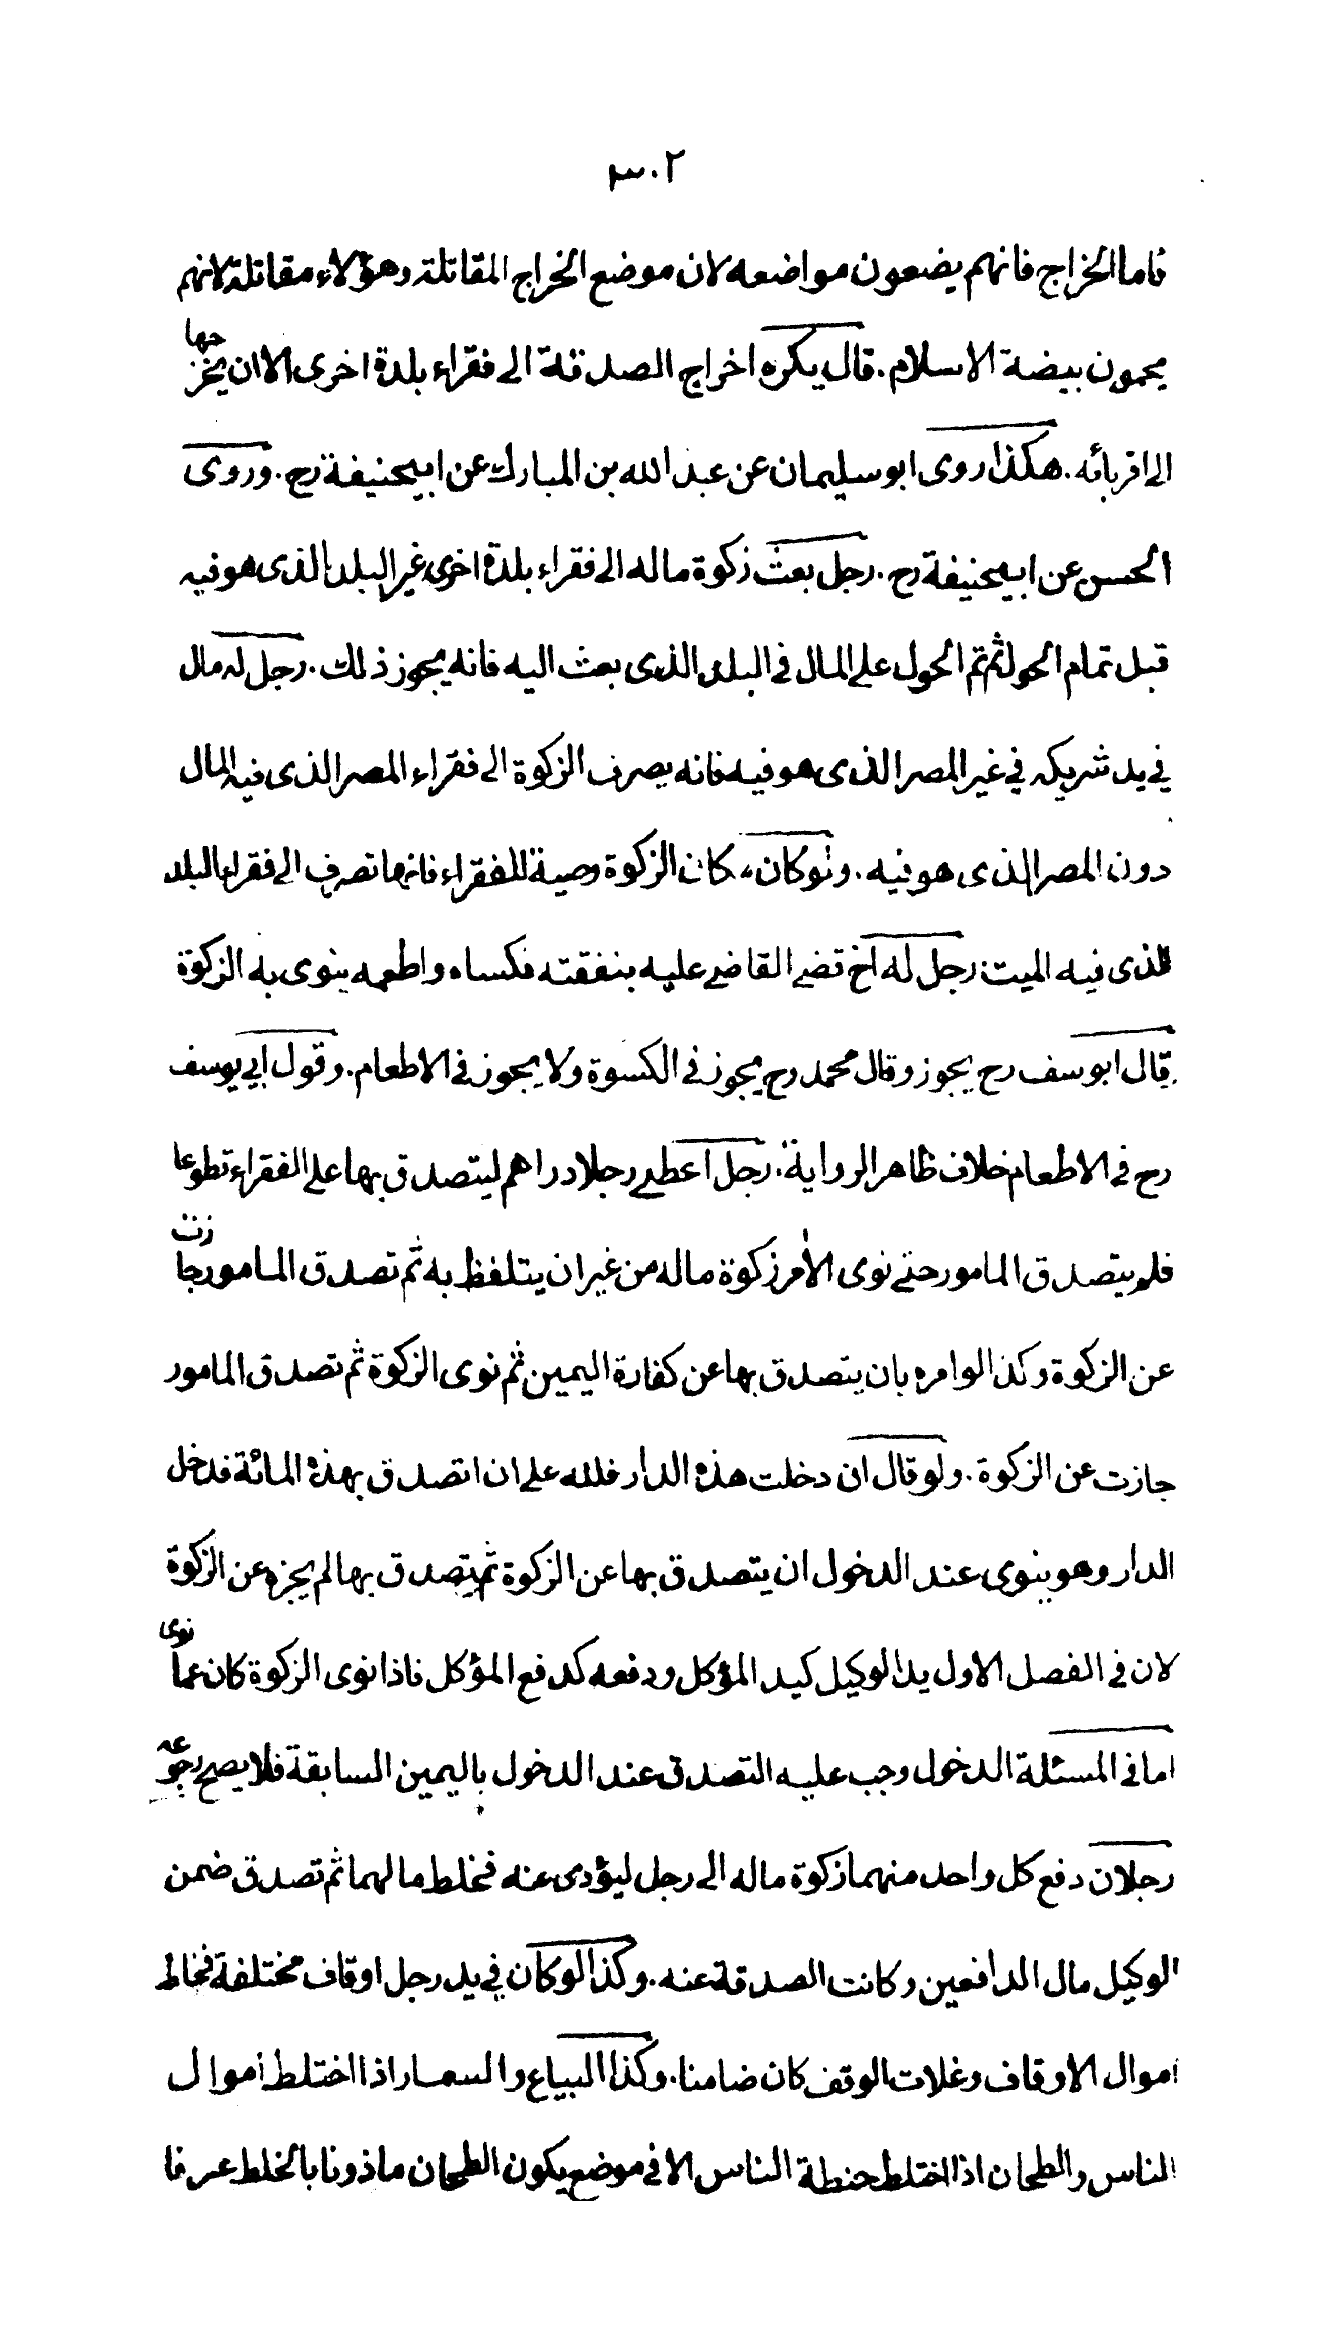 ٣٠٢
فاما الخراج فانهم يضعون مواضعه لان موضع الخراج المقاتلة وهؤلاء مقاتلة لانهم
يحمون بيضة الاسلام. قال يكره اخراج الصدقة الى فقراء بلدة اخرى الا ان يخرجها
الى اقربائه. هكذا روى ابو سليمان عن عبد الله بن المبارك عن ابيحنيفة رح. وروى
الحسن عن ابيحنيفة رح. رجل بعث زكوة ماله الى فقراء بلدة اخرى غير البلد الذى هو فيه
قبل تمام الحول ثم تم الحول على المال فى البلد الذى بعث اليه فانه يجوز ذلك. رجل له مال
فى يد شريكه فى غير المصر الذى هو فيه فانه يصرف الزكوة الى فقراء المصر الذى فيه المال
دون المصر الذى هو فيه. ولو كان، كانت الزكوة وصية للفقراء فانها تصرف الى فقراء البلد
الذى فيه الميت. رجل له اخ قضى القاضى عليه بنفقته فكساه واطعمه ينوى به الزكوة
قال ابو سف رح يجوز وقال محمد رح يجوز فى الكسوة ولا يجوز فى الاطعام. وقول ابي يوسف
رح فى الاطعام خلاف ظاهر الرواية. رجل اعطى رجلا دراهم ليتصدق بها على الفقراء تطوعا
فلم يتصدق المامور حتى نوى الأمر زكوة ماله من غير ان يتلفظ به ثم تصدق المامور جازت
عن الزكوة وكذا لو امره بان يتصدق بها عن كفارة اليمين ثم نوى الزكوة ثم تصدق المامور
جازت عن الزكوة. ولو قال ان دخلت هذه الدار فلله على ان اتصدق بهذه المائة فدخل
الدار وهو ينوى عند الدخول ان يتصدق بها عن الزكوة ثم يتصدق بها لم يجزه عن الزكوة
لان فى الفصل الاول يد الوكيل كيد المؤكل ودفعه كدفع المؤكل فاذا نوى الزكوة كان عما نوى
اما فى المسئلة الدخول وجب عليه التصدق عند الدخول باليمين السابقة فلا يصح رجوعه
رجلان دفع كل واحد منهما زكوة ماله الى رجل ليؤدى عنه فخلط مالهما ثم تصدق ضمن
الوكيل مال الدافعين وكانت الصدقة عنه. وكذا لو كان في يد رجل اوقاف مختلفة فخلط
اموال الاوقاف وغلات الوقف كان ضامنا. وكذا البياع والسمسار اذا اختلط اموال
الناس والطحان اذا اختلط حنطة الناس الا فى موضع يكون الطحان ماذونا بالخلط عرفا